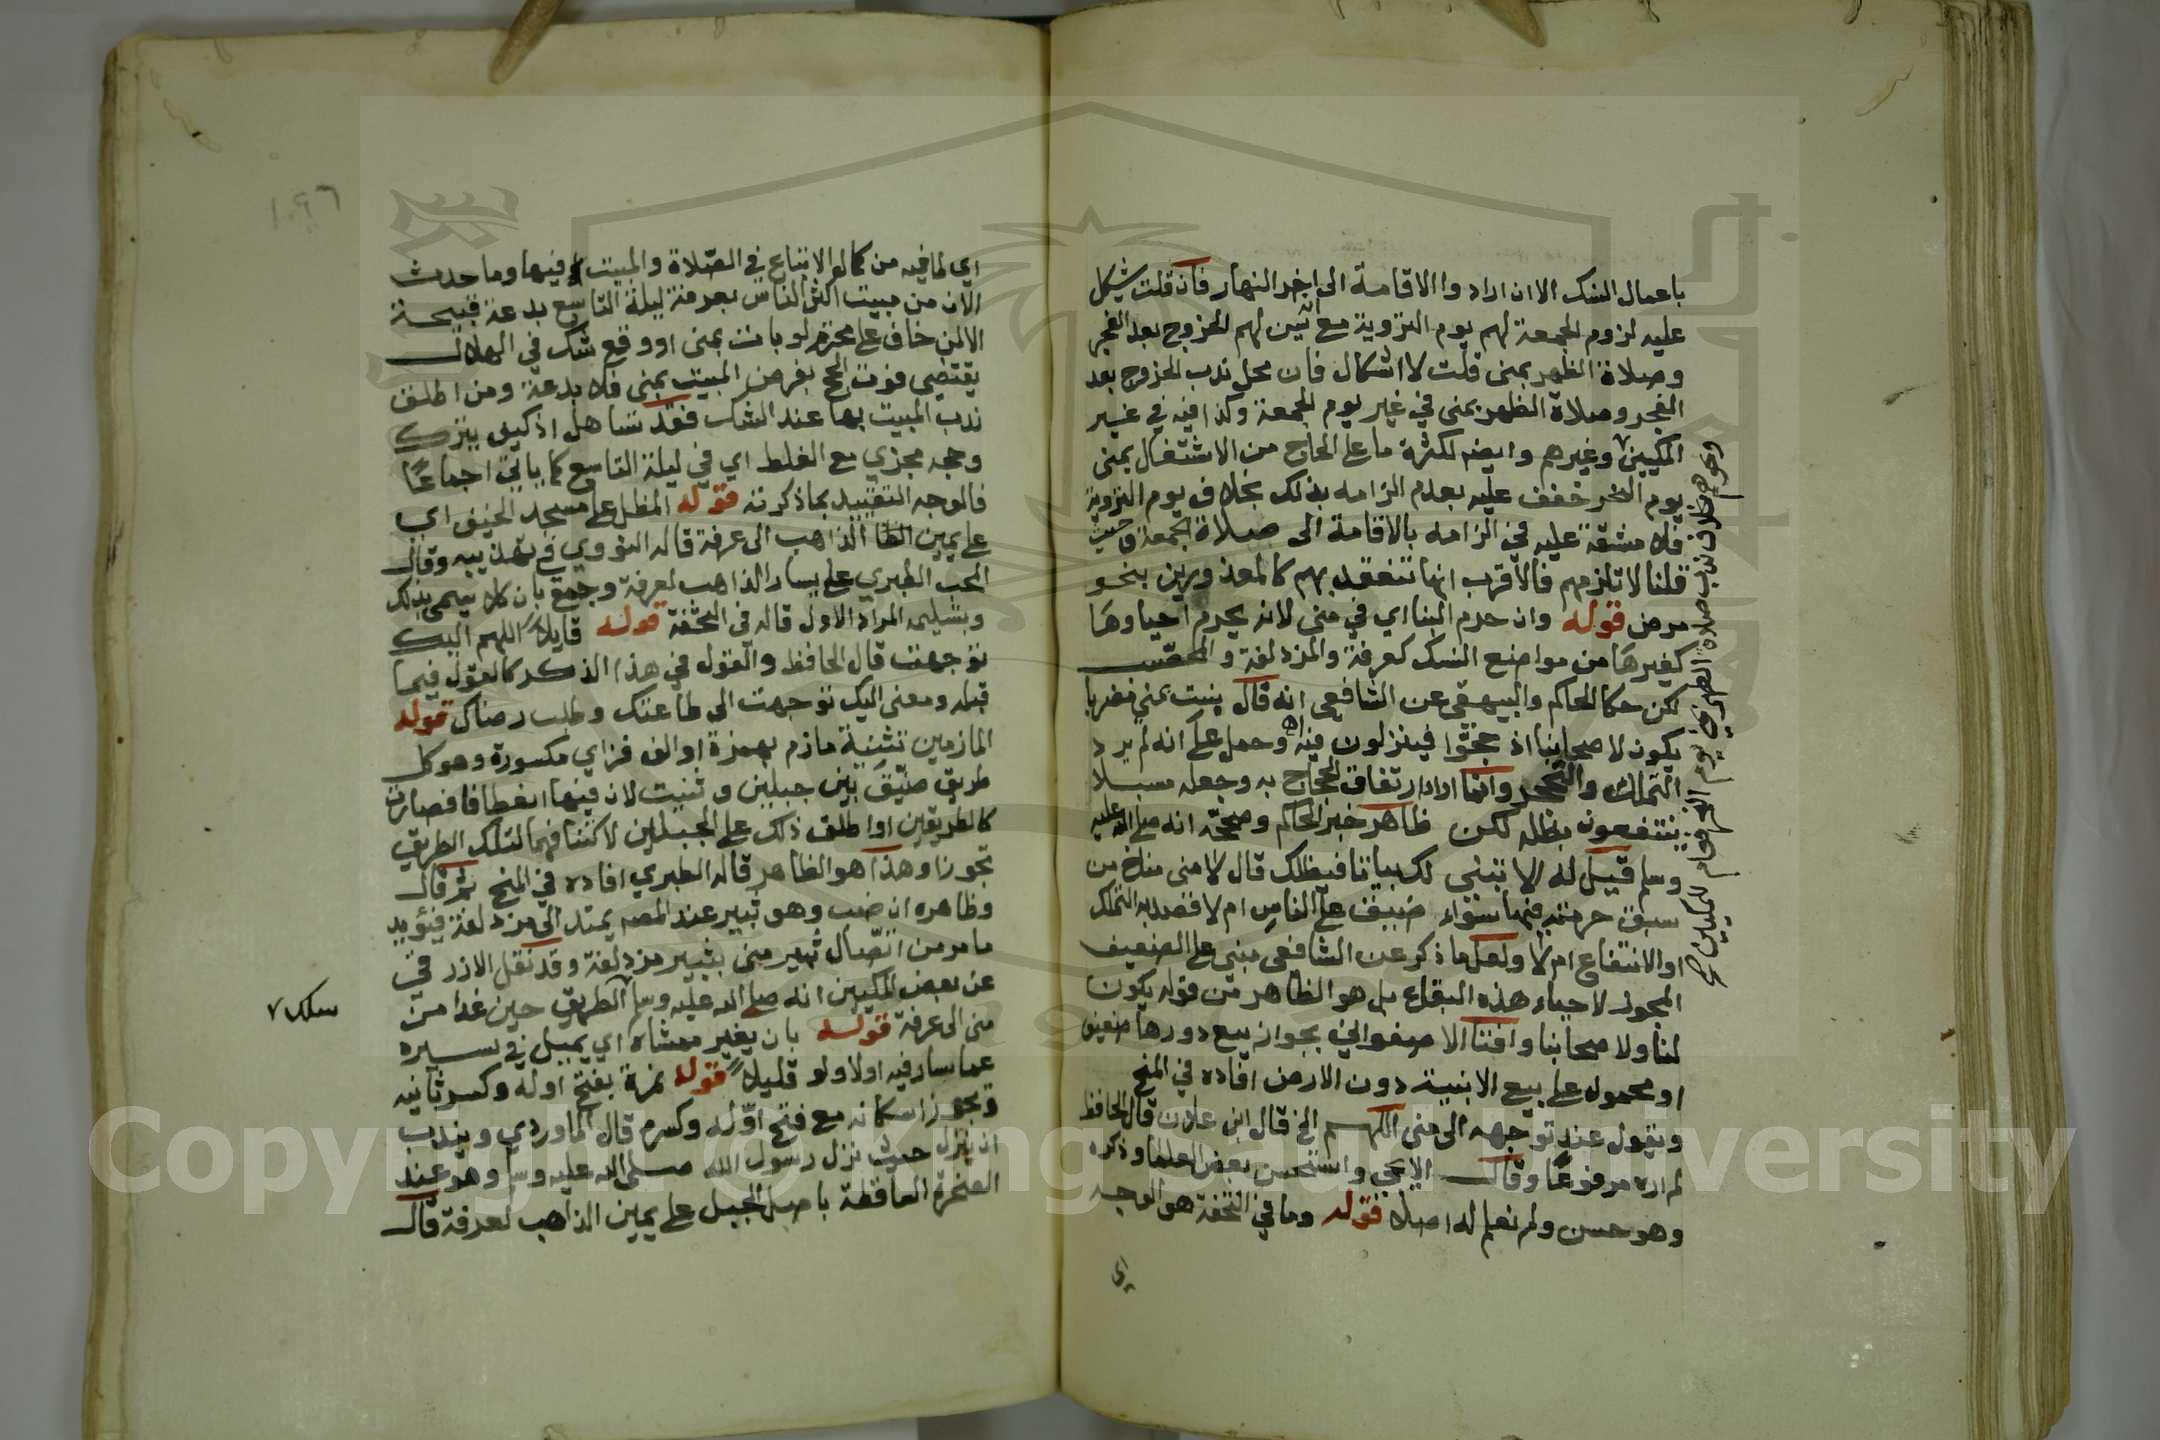 باعمال النسك الا ان ارادوا الاقامة الى اخر النهار فان قلت يشكل
عليه لزوم الجمعة لهم يوم التروية مع انه يسن لهم الخروج بعد الفجر
وصلاة الظهر بمنى قلت لا اشكال فان محل ندب الخروج بعد
الفجر وصلاة الظهر بمنى في غير يوم الجمعة وكذا فيه في غير
المكيين وغيرهم وايضا لكثرة ما على الحاج من الاشتغال بمنى
يوم النحر خفف عليه بعدم الزامه بذلك بخلاف يوم التروية
فلا مشقة عليه في الزامه بالاقامة الى صلاة الجمعة وحيث
قلنا لا تلزمهم فالاقرب انها تنعقد بهم كالمعذورين بنحو
مرض قوله وان حرم البنا اي في منى لانه يحرم احياوها
كغيرها من مواضع النسك كعرفة والمزدلفة والمحصب
لكن حكا الحاكم والبيهقي عن الشافعي انه قال بنيت بمنى مضربا
يكون لاصحابنا اذ حجوا فينزلون فيه اه وحمل على انه لم يرد
التملك والتحجر وانما اراد ارتفاق الحجاج به وجعله مسبلا
ينتفعون بظله لكن ظاهر خبر الحاكم وصححه انه صلى الله عليه
وسلم قيل له الا تبنى لك بيتا فيظلك قال لا منى مناخ من
سبق حرمته فيها سواء ضيق على الناس ام لا قصد به التملك
او الانتفاع ام لا ولعل ما ذكر عن الشافعي مبني على الضعيف
المجوز لاحياء هذه البقاع بل هو الظاهر من قوله يكون
لنا ولاصحابنا وافتنا الاصفواني بجواز بيع دورها ضعيف
او محمول على بيع الابنية دون الارض افاده في المنح
ويقول عند توجهه الى منى اللهم الخ قال ابن علان قال الحافظ
لم اره مرفوعا وقال الايجي واستحسن بعض العلما وذكره
وهو حسن ولم نعلم له اصلا قوله وما في التحفة هو الوجيه
اي
وهو خلاف ندب صلاة الظهر في يوم النحر
اي لما فيه من كمال الاتباع في الصلاة والمبيت فيها وما حدث
الان من مبيت اكثر الناس بعرفة ليلة التاسع بدعة قبيحة
الا لمن خاف على محترم لو بات بمنى او وقع شك في الهلال
يقتضي فوت الحج بفرض المبيت بمنى فلا بدعة ومن اطلق
ندب المبيت بها عند الشك فقد تساهل اذ كيف يترك
وحجه مجزي مع الغلط اي في ليلة التاسع كما ياتي اجماعا
فالوجه التقييد بما ذكرته قوله المطل على مسجد الخيف اي
على يمين الذاهب الى عرفة قاله النووي في تهذيبه وقال
المحب الطبري على يسار الذاهب لعرفة وجمع بان كلا يسمى بذلك
وبتسليمه المراد الاول قاله في التحفة قوله قايلا اللهم اليك
توجهت قال الحافظ والقول في هذا الذكر كالقول فيما
قبله ومعنى اليك توجهت الى طاعتك وطلب رضاك قوله
المازمين تثنية مازم بهمزة او الف فزاي مكسورة وهو كل
طريق ضيق بين جبلين وثنيت لان فيها انعطافا فصارت
كالطريقين او اطلق ذلك على الجبلين لاكتنافهما لتلك الطريق
تجوزا وهذا هو الظاهر قاله الطبري افاده في المنح ثم قال
وظاهره ان ضب وهو ثبير عند المصه يمتد الى مزدلفة فيؤيد
ما مر من اتصال ثبير منى بثبير مزدلفة وقد نقل الازرقي
عن بعض المكيين انه صلى الله عليه وسلم الطريق حين غدا من
منى الى عرفة قوله بان يغير ممشاه اي يميل في سيره
عما سار فيه اولا ولو قليلا قوله نمرة بفتح اوله وكسر ثانيه
ويجوز اسكانه مع فتح اوله وكسره قال الماوردي ويندب
ان ينزل حيث نزل رسول الله صلى الله عليه وسلم وهو عند
الصخرة الساقطة باصل الجبل على يمين الذاهب لعرفة قال
سلك ٧